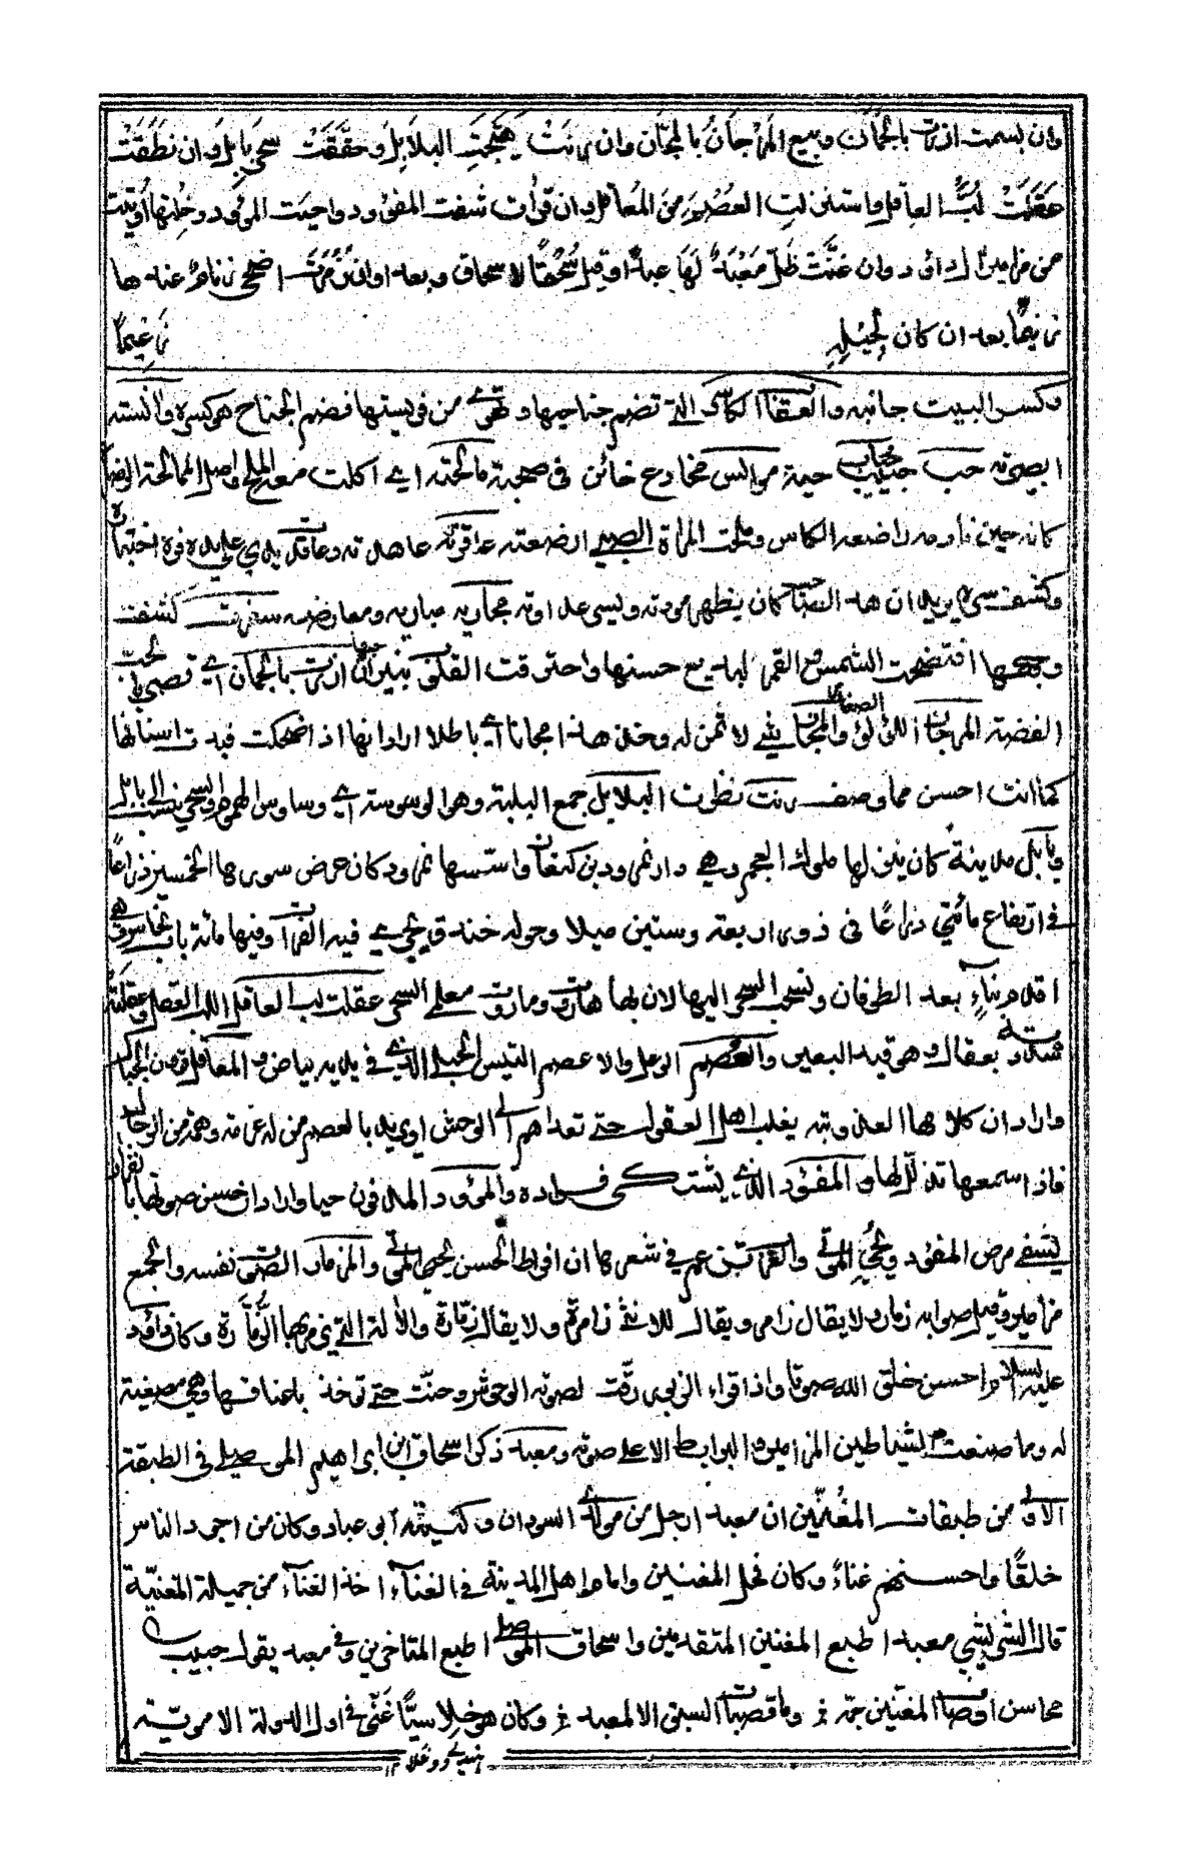 وان بسمت ازرت بالجمان وبيع المَرْجَانُ بالمجّان وان رنَتْ هيّجتِ البلابلَ وحقّقَتْ سحر بابل وان نطقَتْ
عقَلَتْ لُبَّ العاقل واستنزلت العُصْمَ من المَعاقل وان قرأت شفت المفؤد واحيت المؤود وخِلتها اوتيت
من مزامير ال داؤد وان غنَّت ظلّ مَعْبَدٌ لها عبدًا وقيل سُحْقًا لاسحاق وبعدا وان زَمَرَتْ اضحى زنام عندها
زنيمًا بعد ان كان لجيله زعيمًا
وكسر البيت جانبه والعقاب الكاسر التي تضم جناحيها وتهوي من فريستها فضم الجناح هو كسره وانسته
البصرته حب حباب حية موالس مخادع خائن في صحبته مالحته اي اكلت معه الملح واصل الممالحة الرضاع
كانه حين نادمه راضعه الكاس وملحت المراة الصبي ارضعته عاقرته عاهدته وعاقد يدي علي يده فره اختباره
وكشف سره يريد ان هذا الصاحب كان يظهر مودته ويسر عداوته مجاريه مباريه ومعارضه سفرت كشفت
وجهها افتضحت الشمس والقمر لبديع حسنها واحترقت القلوب بنيران حبها ازرت بالجمان اي قصرت بحب
الفضة المرجان اللؤلؤ الصغار والمجان شيء لا ثمن له وخذ هذا مجانا اي باطلا اراد انها اذا ضحكت فبدت اسنانها
كانت احسن مما وصف رنت نظرت البلابل جمع البلبلة وهو الوسوسة اي وساوس الهموم والسحر ينسب الى بابل
وبابل مدينة كان ينزلها ملوك العجم وهي دار نمرود بن كنعان واسسها نمرود كان عرض سورها خمسين ذراعًا
في ارتفاع مائتي ذراعًا في دور اربعة وستين ميلا وحوله خندق يجري فيه الفرات وفيها مائة باب نحاس وهي
اقدم بناءٍ بعد الطوفان ونسب السحر اليها لان بها هاروت وماروت معلمي السحر عقلت لب العاقل اللب العقل وعقلته
شدته بعقال وهو قيد البعير والعصم الوعل والاعصم التيس الجبلي الذي في يديه بياض والمعاقل قرون الجبال
واراد ان كلامها العذوبته يغلب اهل العقول حتى تعداهم الى الوحش او يريد بالعصم من له عزمة وهمة من الرجال
فاذا سمعها تذلل لها والمفؤد الذي يشتكي فواده والمؤود المدفون حيا واراد ان حسن صوتها بالقراءة
يشفي مرض المفؤد ويحيي الموتى في شعرها ان افراط الحسن يحيي الموتى والمزمار الصوت نفسه والجمع
مزامير وقيل صوابه زمار ولا يقال زامر ويقال للانثى زامرة ولا يقال زمّارة والآلة التي يزمر بها الزُمّارة وكان داؤد
عليه السلام احسن خلق الله صوتا واذا قراء الزبور رقت لصوته الوحوش وحنّت حتى توخذ باعناقها وهي مصغية
له وما صنعت الشياطين المزامير والبرابط الا على صوته ومعبد ذكر اسحاق ابن ابراهيم الموصلي في الطبقة
الاولى من طبقات المغنّين ان معبدا رجل من مولدي السودان وكنيته ابي عباد وكان من اجود الناس
خلقًا واحسنهم غناءً وكان فحل المغنين وامام اهل المدينة في الغناء اخذ الغناء من جميلة المغنيّة
قال الشريشي معبد اطبع المغنين المتقدمين واسحاق الموصلي اطبع المتاخرين وفي معبد يقول حبيب
محاسن اوصاف المغنّين جمّة ؛ وما قصبات السبق الا لمعبد ؛ وكان هو خلاسيًا غنّى في اول الدولة الاموية